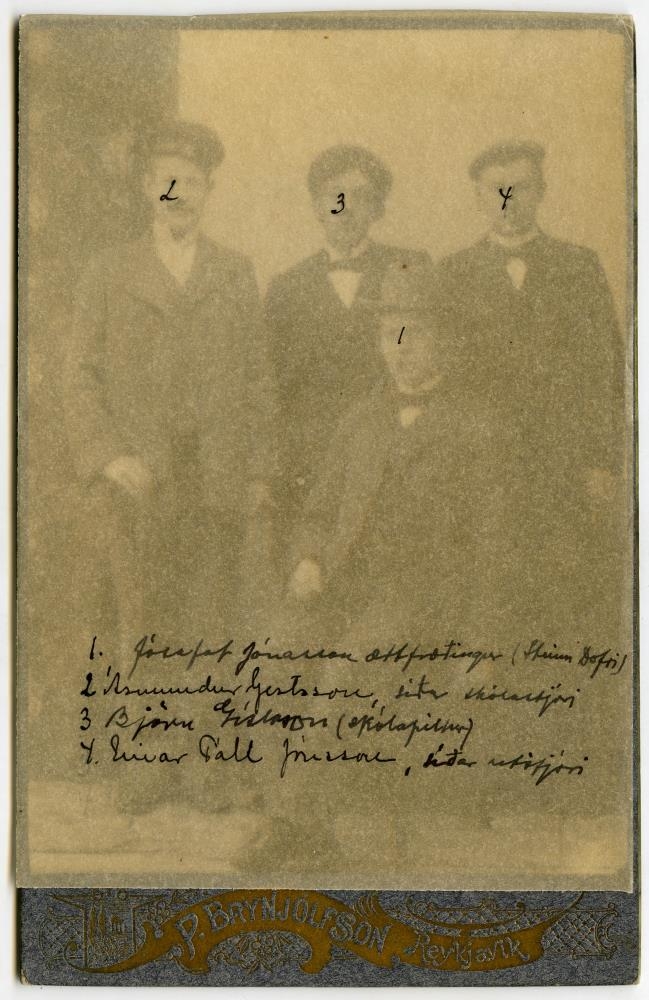 2
3
4
1
1. Jósafat Jónasson ættfræðingur (Steinn Dofri)
2 Ásmundur Gestsson, síðar skólastjóri
3 Björn Gíslason (skólapiltur)
4. Einar Páll Jónsson, síðar ritstjóri
P. BRYNJÓLFSSON Reykjavík